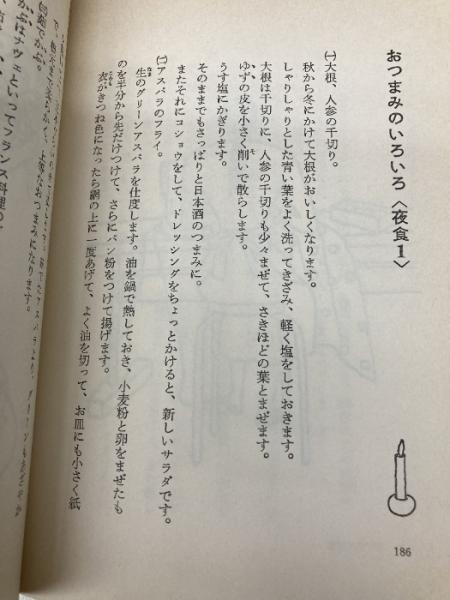 おつまみのいろいろ〈夜食1〉
㈠大根、人参の千切り。
秋から冬にかけて大根がおいしくなります。
しゃりしゃりとした青い葉をよく洗ってきざみ、軽く塩をしておきます。
大根は千切りに、人参の千切りも少々まぜて、さきほどの葉とまぜます。
ゆずの皮を小さく削いで散らします。
うす塩にかぎります。
そのままでもさっぱりと日本酒のつまみに。
またそれにコショウをして、ドレッシングをちょっとかけると、新しいサラダです。
㈡アスパラのフライ。
生のグリーンアスパラを仕度します。油を鍋で熱しておき、小麦粉と卵をまぜたも
のを半分から先だけつけて、さらにパン粉をつけて揚げます。
衣がきつね色になったら鍋の上に一度あげて、よく油を切って、お皿にも小さく紙
上等なおつまみになります。
かぶはナヴェといってフランス料理の
186